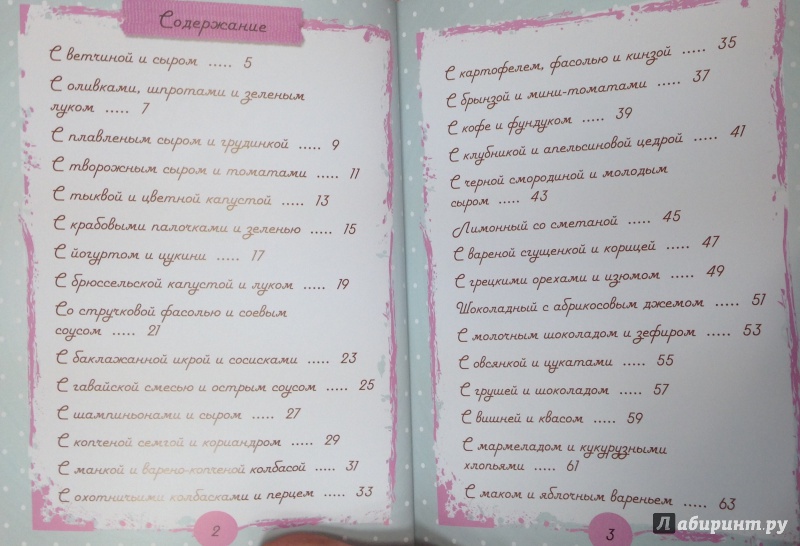 Содержание
С ветчиной и сыром ..... 5
С оливками, шпротами и зеленым
луком ..... 7
С плавленым сыром и грудинкой ..... 9
С творожным сыром и томатами ..... 11
С тыквой и цветной капустой ..... 13
С крабовыми палочками и зеленью ..... 15
С йогуртом и цукини ..... 17
С брюссельской капустой и луком ..... 19
Со стручковой фасолью и соевым
соусом ..... 21
С баклажанной икрой и сосисками ..... 23
С гавайской смесью и острым соусом ..... 25
С шампиньонами и сыром ..... 27
С копченой семгой и кориандром ..... 29
С манкой и варено-копченой колбасой ..... 31
С охотничьими колбасками и перцем ..... 33
2
С картофелем, фасолью и кинзой ..... 35
С брынзой и мини-томатами ..... 37
С кофе и фундуком ..... 39
С клубникой и апельсиновой цедрой ..... 41
С черной смородиной и молодым
сыром ..... 43
Лимонный со сметаной ..... 45
С вареной сгущенкой и корицей ..... 47
С грецкими орехами и изюмом ..... 49
Шоколадный с абрикосовым джемом ..... 51
С молочным шоколадом и зефиром ..... 53
С овсянкой и цукатами ..... 55
С грушей и шоколадом ..... 57
С вишней и квасом ..... 59
С мармеладом и кукурузными
хлопьями ..... 61
С маком и яблочным вареньем ..... 63
3
Лабиринт.ру